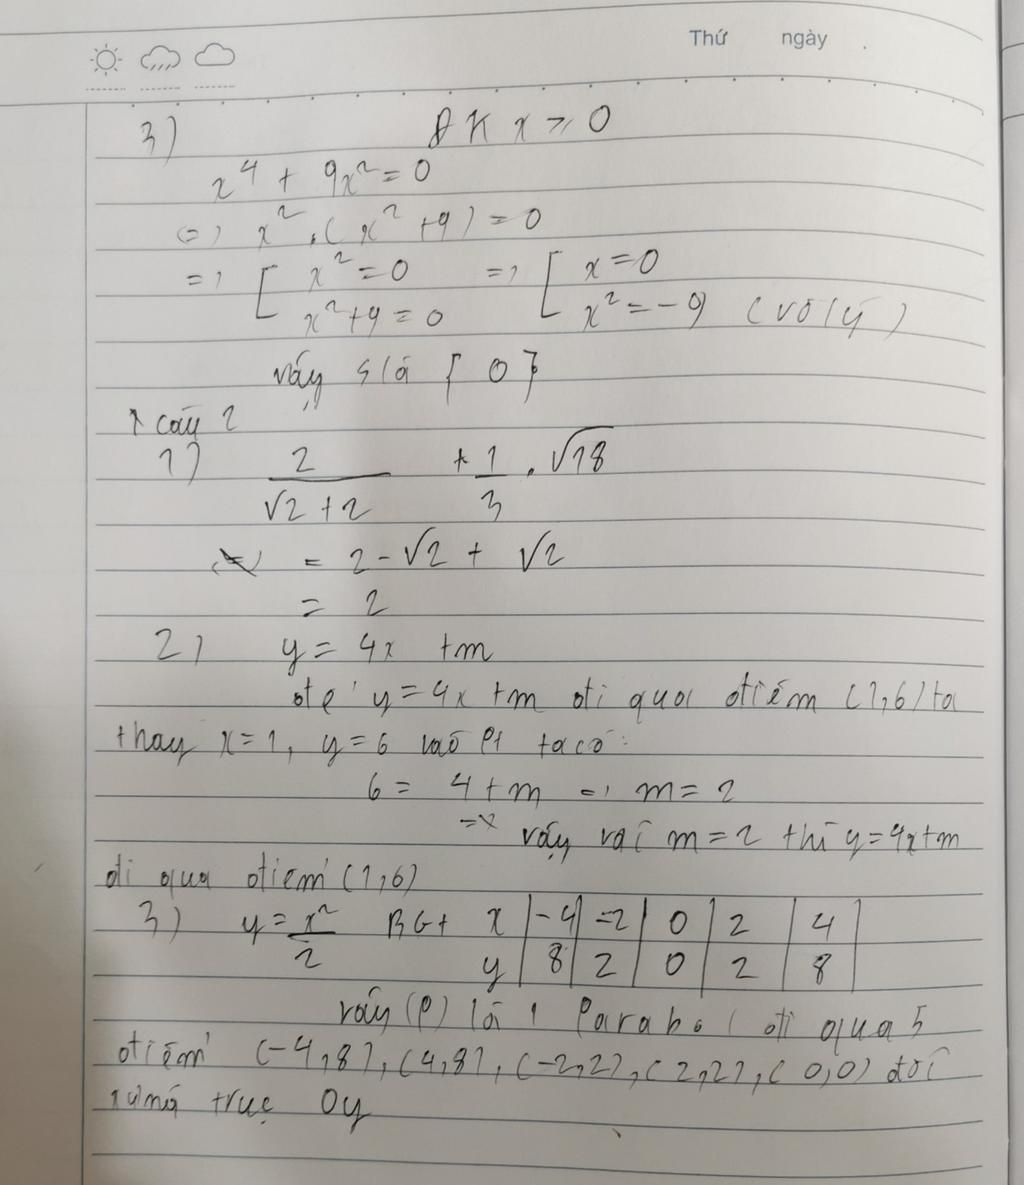 Thứ ngày .
3) ĐK x ≥ 0
x⁴ + 9x² = 0
(=) x² . (x² + 9) = 0
=) [ x² = 0 =) [ x = 0
x² + 9 = 0 x² = -9 (vô lý)
vậy S là { 0 }
* câu 2
1) 2/(√2 + 2) + 1/3 . √18
= 2 - √2 + √2
= 2
2) y = 4x + m
để y = 4x + m đi qua điểm (1,6) ta
thay x = 1, y = 6 vào Pt ta có:
6 = 4 + m =) m = 2
=> vậy vơi m = 2 thì y = 4x + m
đi qua điểm (1,6)
3) y = x²/2 BGt x | -4 | -2 | 0 | 2 | 4
y | 8 | 2 | 0 | 2 | 8
vậy (P) là 1 Parabol đi qua 5
điểm (-4,8), (4,8), (-2,2), (2,2), (0,0) đối
xứng trục Oy